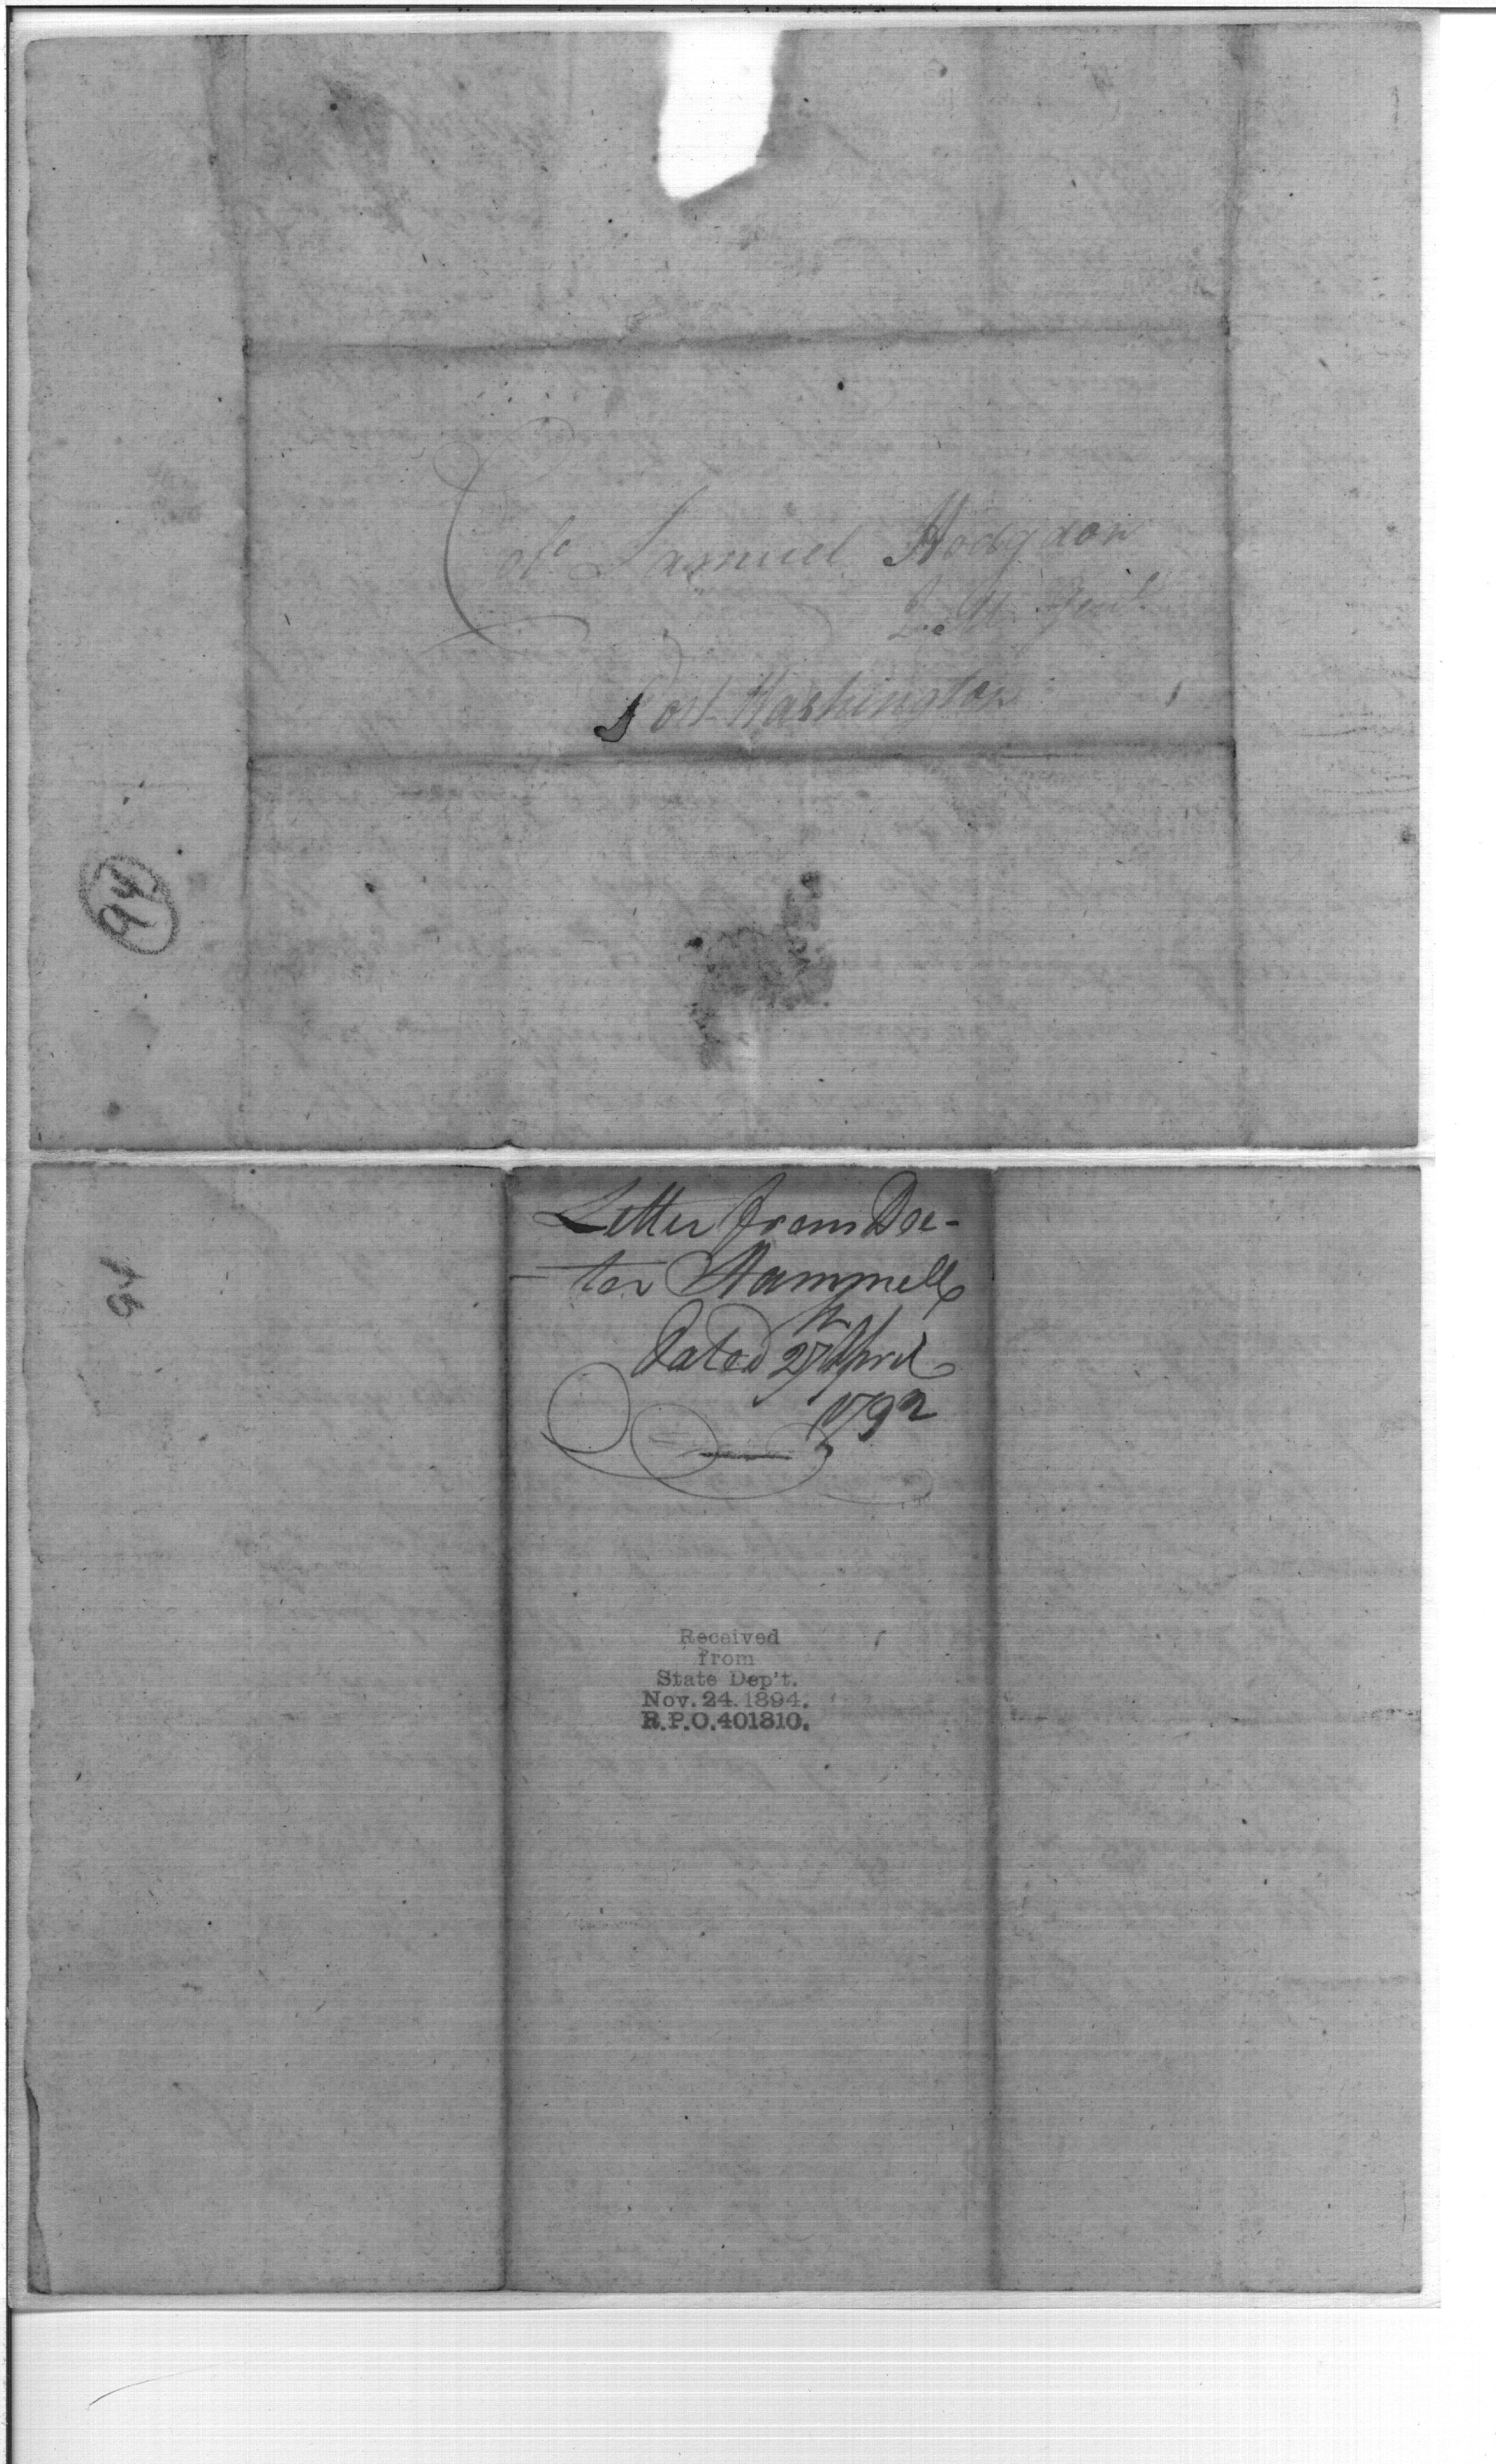 Colo Samuel Hodgdon
Q. M. Genl
Fort Washington
94
Letter from Doc-
-tor Hammell
dated 27th April
1792
95
Received
from
State Dep't.
Nov. 24. 1894.
R.P.O. 401810.